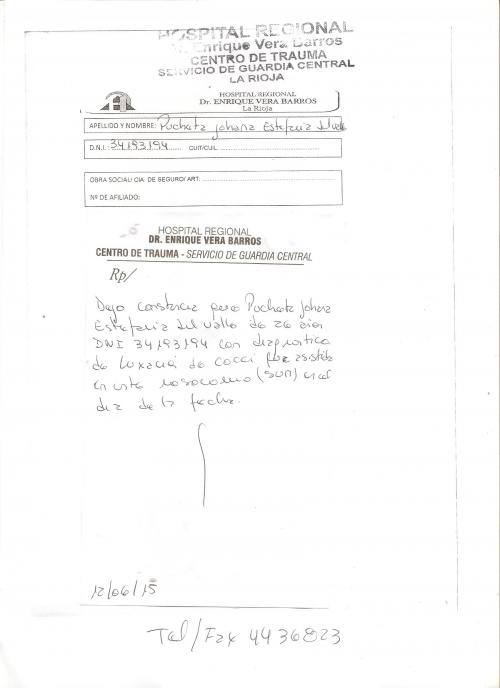 HOSPITAL REGIONAL
Dr. Enrique Vera Barros
CENTRO DE TRAUMA
SERVICIO DE GUARDIA CENTRAL
LA RIOJA
HOSPITAL REGIONAL
Dr. ENRIQUE VERA BARROS
La Rioja
APELLIDO Y NOMBRE: Pucheta Johana Estefania del Valle
D.N.I.: 34193194 CUIT/CUIL:
OBRA SOCIAL/ CIA. DE SEGURO/ ART:
Nº DE AFILIADO:
HOSPITAL REGIONAL
DR. ENRIQUE VERA BARROS
CENTRO DE TRAUMA - SERVICIO DE GUARDIA CENTRAL
Rp/
Dejo constancia para Pucheta Johana
Estefania del Valle de 26 años
DNI 34193194 con diagnostico
de Luxación de Cocci fue asistida
en este nosocomio (SUM) en el
dia de la fecha.
12/06/15
Tel/Fax 4436823